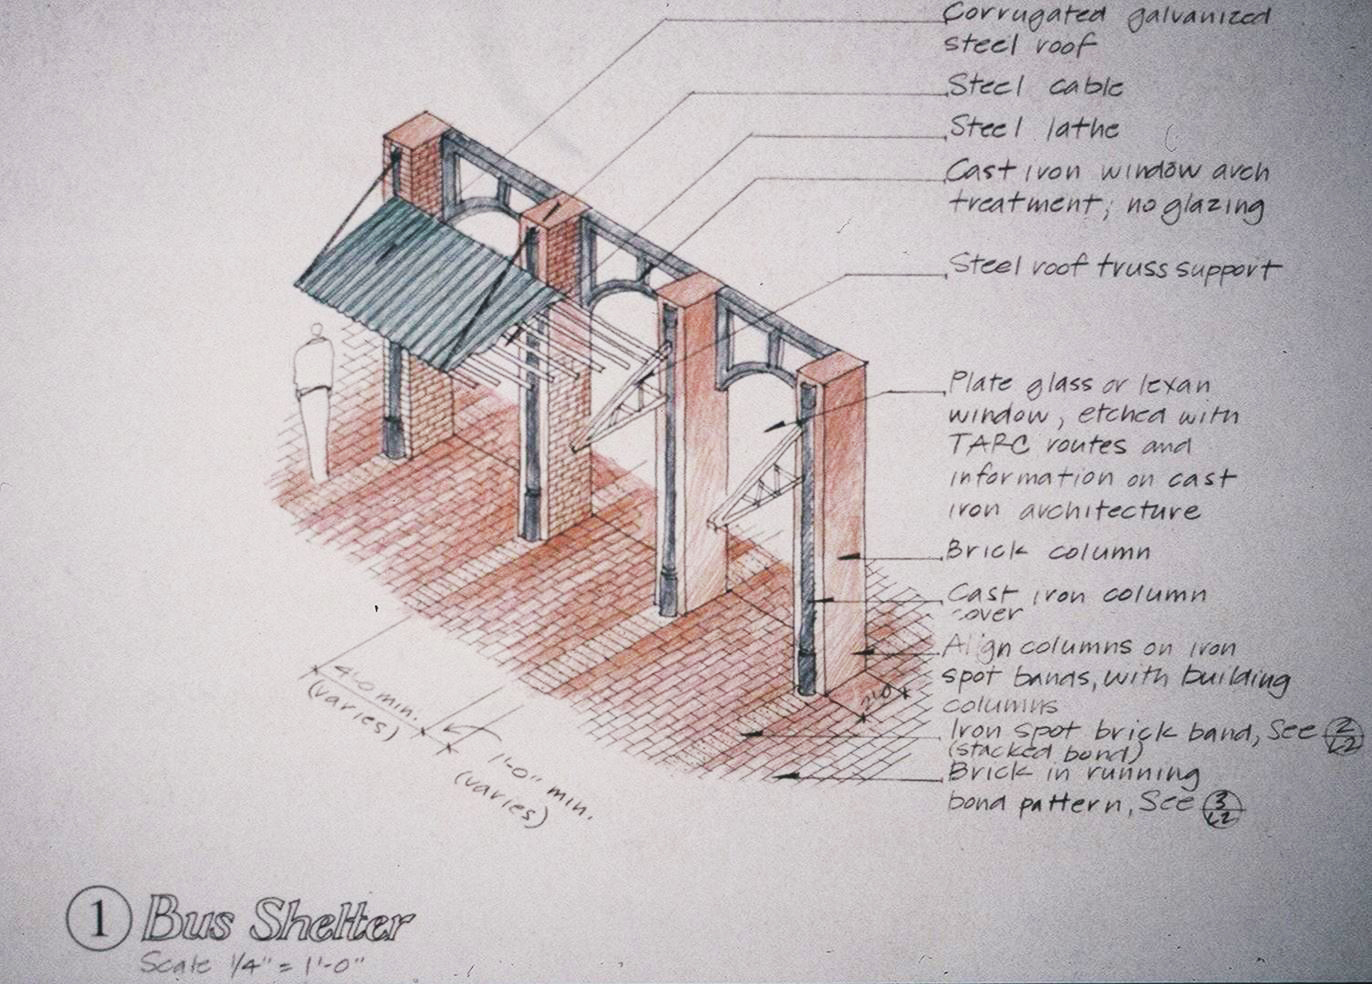 Corrugated galvanized
steel roof
Steel cable
Steel lathe
Cast iron window arch
treatment, no glazing
Steel roof truss support
Plate glass or lexan
window, etched with
TARC routes and
information on cast
iron architecture
Brick column
Cast iron column
cover
Align columns on iron
spot bands, with building
columns
Iron spot brick band, See 2/L2
(stacked bond)
Brick in running
bond pattern, See 3/L2
4'-0 min.
(varies)
1'-0" min.
(varies)
2'-0
1 Bus Shelter
Scale 1/4" = 1'-0"